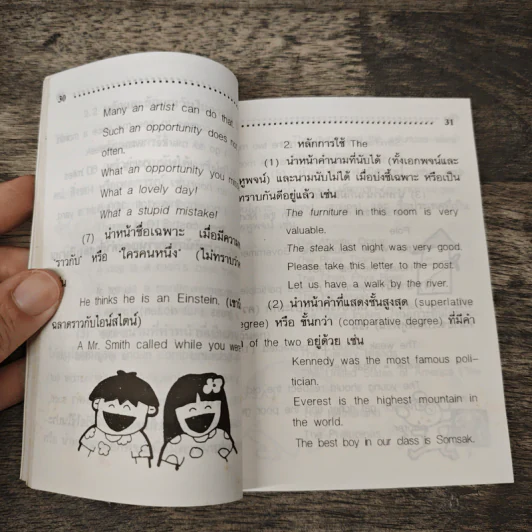 30
Many an artist can do that
Such an opportunity does
often.
What an opportunity you
What a lovely day!
What a stupid mistake!
(7) นำหน้าชื่อเฉพาะ เมื่อมีความ
'ราวกับ' หรือ 'ใครคนหนึ่ง' (ไม่ทราบว่า
He thinks he is an Einstein.
ฉลาดราวกับไอน์สไตน์)
A Mr. Smith called while you were
31
2. หลักการใช้ The
(1) นำหน้าคำนามที่นับได้ (ทั้งเอกพจน์และ
หูพจน์) และนามนับไม่ได้ เมื่อบ่งชี้เฉพาะ หรือเป็น
ทราบกันดีอยู่แล้ว เช่น
The furniture in this room is very
valuable.
The steak last night was very good.
Please take this letter to the post.
Let us have a walk by the river.
(2) นำหน้าคำที่แสดงขั้นสูงสุด (superlative
degree) หรือ ขั้นกว่า (comparative degree) ที่มีคำ
of the two อยู่ด้วย เช่น
Kennedy was the most famous poli-
tician.
Everest is the highest mountain in
the world.
The best boy in our class is Somsak.